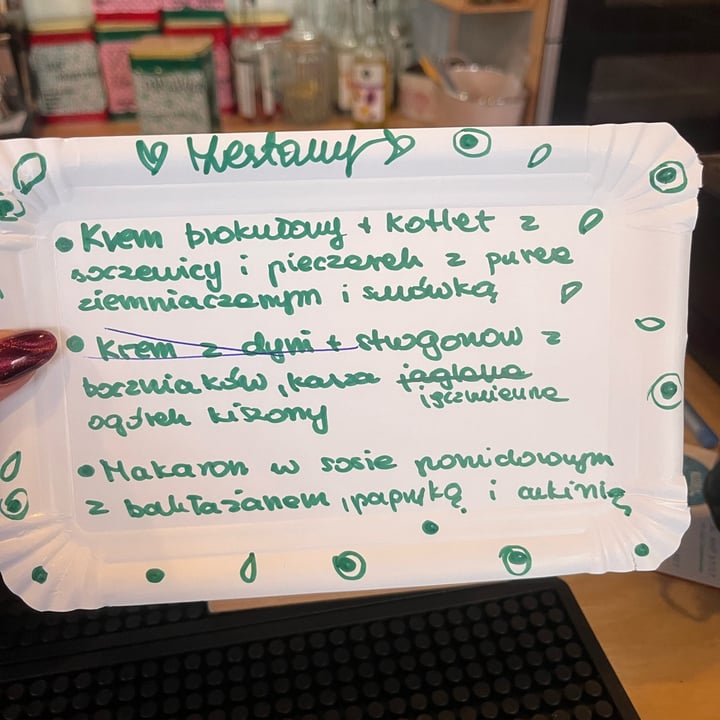 Zestawy
• Krem brokułowy + kotlet z
soczewicy i pieczarek z puree
ziemniaczanym i surówką
• Krem z dyni + strogonow z
boczniaków, kasza jaglana
jęczmienna
ogórek kiszony
• Makaron w sosie pomidorowym
z bakłażanem, papryką i cukinią